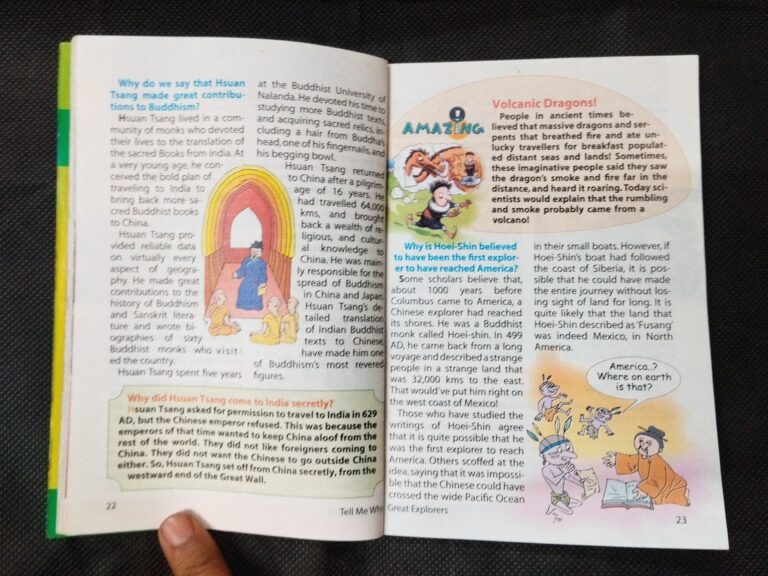 Why do we say that Hsuan
Tsang made great contribu-
tions to Buddhism?
Hsuan Tsang lived in a com-
munity of monks who devoted
their lives to the translation of
the sacred Books from India. At
a very young age, he con-
ceived the bold plan of
traveling to India to
bring back more sa-
cred Buddhist books
to China.
Hsuan Tsang pro-
vided reliable data
on virtually every
aspect of geogra-
phy. He made great
contributions to the
history of Buddhism
and Sanskrit litera-
ture and wrote bi-
ographies of sixty
Buddhist monks who visit-
ed the country.
Hsuan Tsang spent five years
at the Buddhist University of
Nalanda. He devoted his time to
studying more Buddhist texts,
and acquiring sacred relics, in-
cluding a hair from Buddha's
head, one of his fingernails, and
his begging bowl.
Hsuan Tsang returned
to China after a pilgrim-
age of 16 years. He
had travelled 64,000
kms, and brought
back a wealth of re-
ligious, and cultur-
al knowledge to
China. He was main-
ly responsible for the
spread of Buddhism
in China and Japan.
Hsuan Tsang's de-
tailed translation
of Indian Buddhist
texts to Chinese,
have made him one
of Buddhism's most revered
figures.
Why did Hsuan Tsang come to India secretly?
Hsuan Tsang asked for permission to travel to India in 629
AD, but the Chinese emperor refused. This was because the
emperors of that time wanted to keep China aloof from the
rest of the world. They did not like foreigners coming to
China. They did not want the Chinese to go outside China
either. So, Hsuan Tsang set off from China secretly, from the
westward end of the Great Wall.
22
Tell Me Why
AMAZING
Volcanic Dragons!
People in ancient times be-
lieved that massive dragons and ser-
pents that breathed fire and ate un-
lucky travellers for breakfast populat-
ed distant seas and lands! Sometimes,
these imaginative people said they saw
the dragon's smoke and fire far in the
distance, and heard it roaring. Today sci-
entists would explain that the rumbling
and smoke probably came from a
volcano!
Why is Hoei-Shin believed
to have been the first explor-
er to have reached America?
Some scholars believe that,
about 1000 years before
Columbus came to America, a
Chinese explorer had reached
its shores. He was a Buddhist
monk called Hoei-shin. In 499
AD, he came back from a long
voyage and described a strange
people in a strange land that
was 32,000 kms to the east.
That would've put him right on
the west coast of Mexico!
Those who have studied the
writings of Hoei-Shin agree
that it is quite possible that he
was the first explorer to reach
America. Others scoffed at the
idea, saying that it was impossi-
ble that the Chinese could have
crossed the wide Pacific Ocean
in their small boats. However, if
Hoei-Shin's boat had followed
the coast of Siberia, it is pos-
sible that he could have made
the entire journey without los-
ing sight of land for long. It is
quite likely that the land that
Hoei-Shin described as 'Fusang'
was indeed Mexico, in North
America.
America..?
Where on earth
is that?
Great Explorers
23